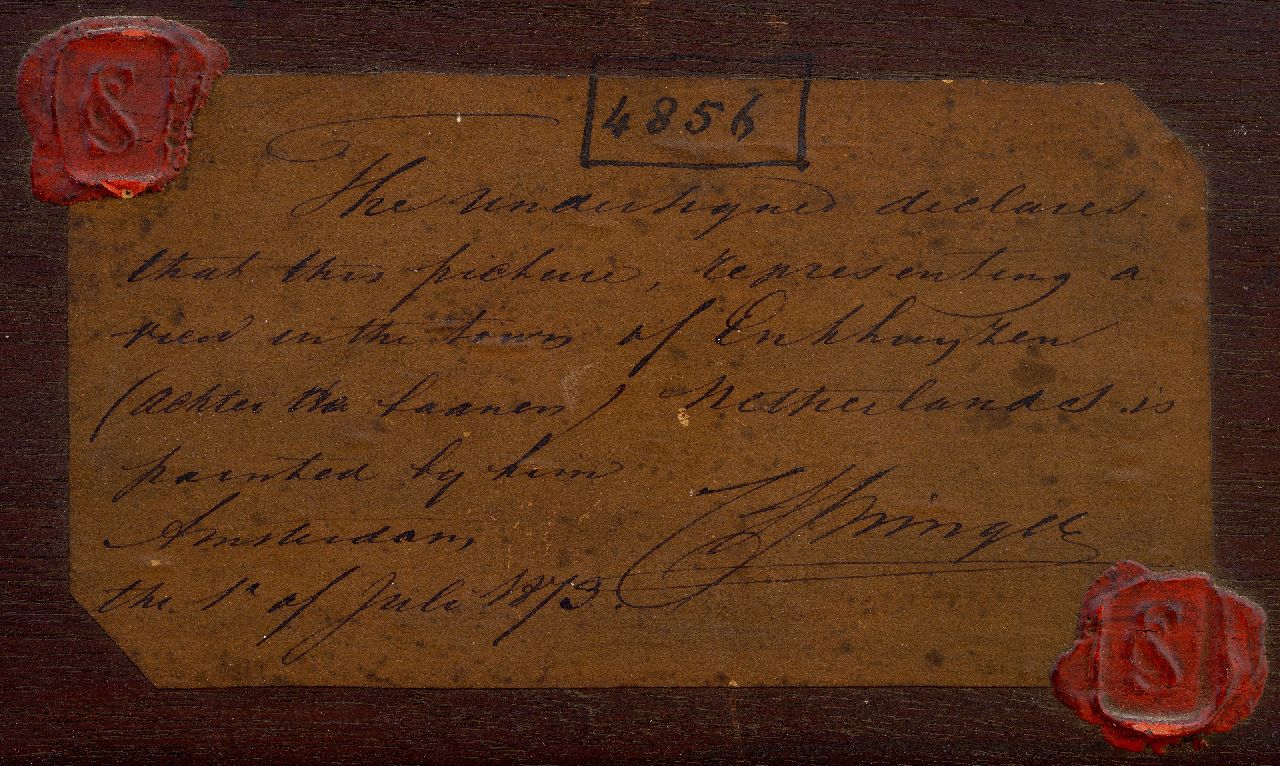 S
4856
The undersigned declares
that this picture, representing a
view in the town of Enkhuyzen
(Achter the Laanen) Netherlands is
painted by him
Amsterdam, CSpringer
the 1e of Juli 1873.
S